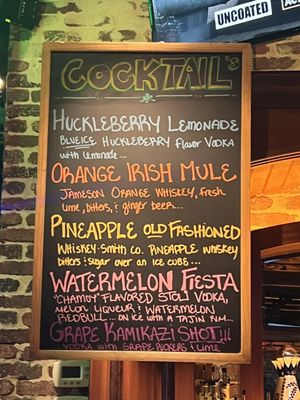 UNCOATED
COCKTAIL's
HUCKLEBERRY LEMONADE
BLUEICE HUCKLEBERRY FLAVOR VODKA
with LEMONADE...
ORANGE IRISH MULE
JAMESON ORANGE WHISKEY, FRESH
lime, BITTERS, & GINGER BEER...
PINEAPPLE OLD FASHIONED
WHISKEY-SMITH CO. PINEAPPLE WHISKEY
BITTERS & SUGAR OVER AN ICE CUBE...
WATERMELON FIESTA
"CHAMOY" FLAVORED STOLI VODKA,
MELON LIQUEUR & WATERMELON
REDBULL... ON ICE WITH A TAJIN RIM...
GRAPE KAMIKAZI SHOT!!!
VODKA WITH GRAPE PUCKERS & lime